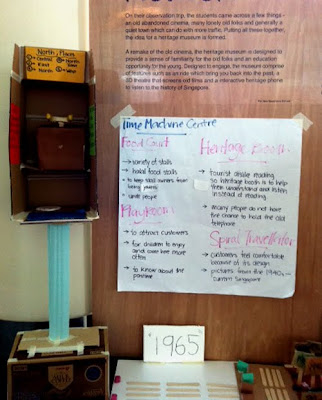 On their observation trip, the students came across a few things -
an old abandoned cinema, many lonely old folks and generally a
quiet town which can do with more traffic. Putting all these together,
the idea for a heritage museum is formed.
A remake of the old cinema, the heritage museum is designed to
provide a sense of familiarity for the old folks and an education
opportunity for the young. Designed to engage, the museum comprise
of features such as an ride which bring you back into the past, a
3D theatre that screens old films and a interactive heritage phone
to listen to the history of Singapore.
Time Machine Centre
Food Court
→ variety of stalls
→ halal food stalls
→ to keep stall owners from
being
→ small people
Playroom
→ to attract customers
→ for children to enjoy
and come here more
often
→ to know about the
pastime
Heritage Booth
→ tourist dislike reading
so heritage booth is to help
them understand and listen
instead of reading
→ many people do not have
the chance to hold the old
telephone
Spiral Traveller
→ customers feel comfortable
because of its design
→ pictures from the 1940s -
current Singapore
North
Central
East
North
West
"1965"